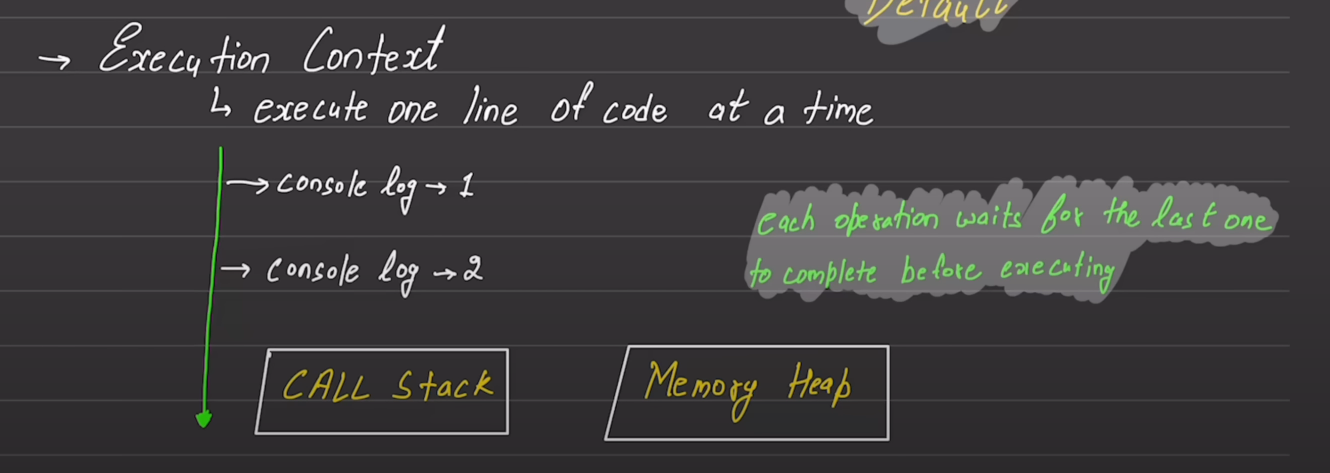 Default
→ Execution Context
↳ execute one line of code at a time
→ console log → 1
→ console log → 2
each operation waits for the last one
to complete before executing
CALL Stack
Memory Heap